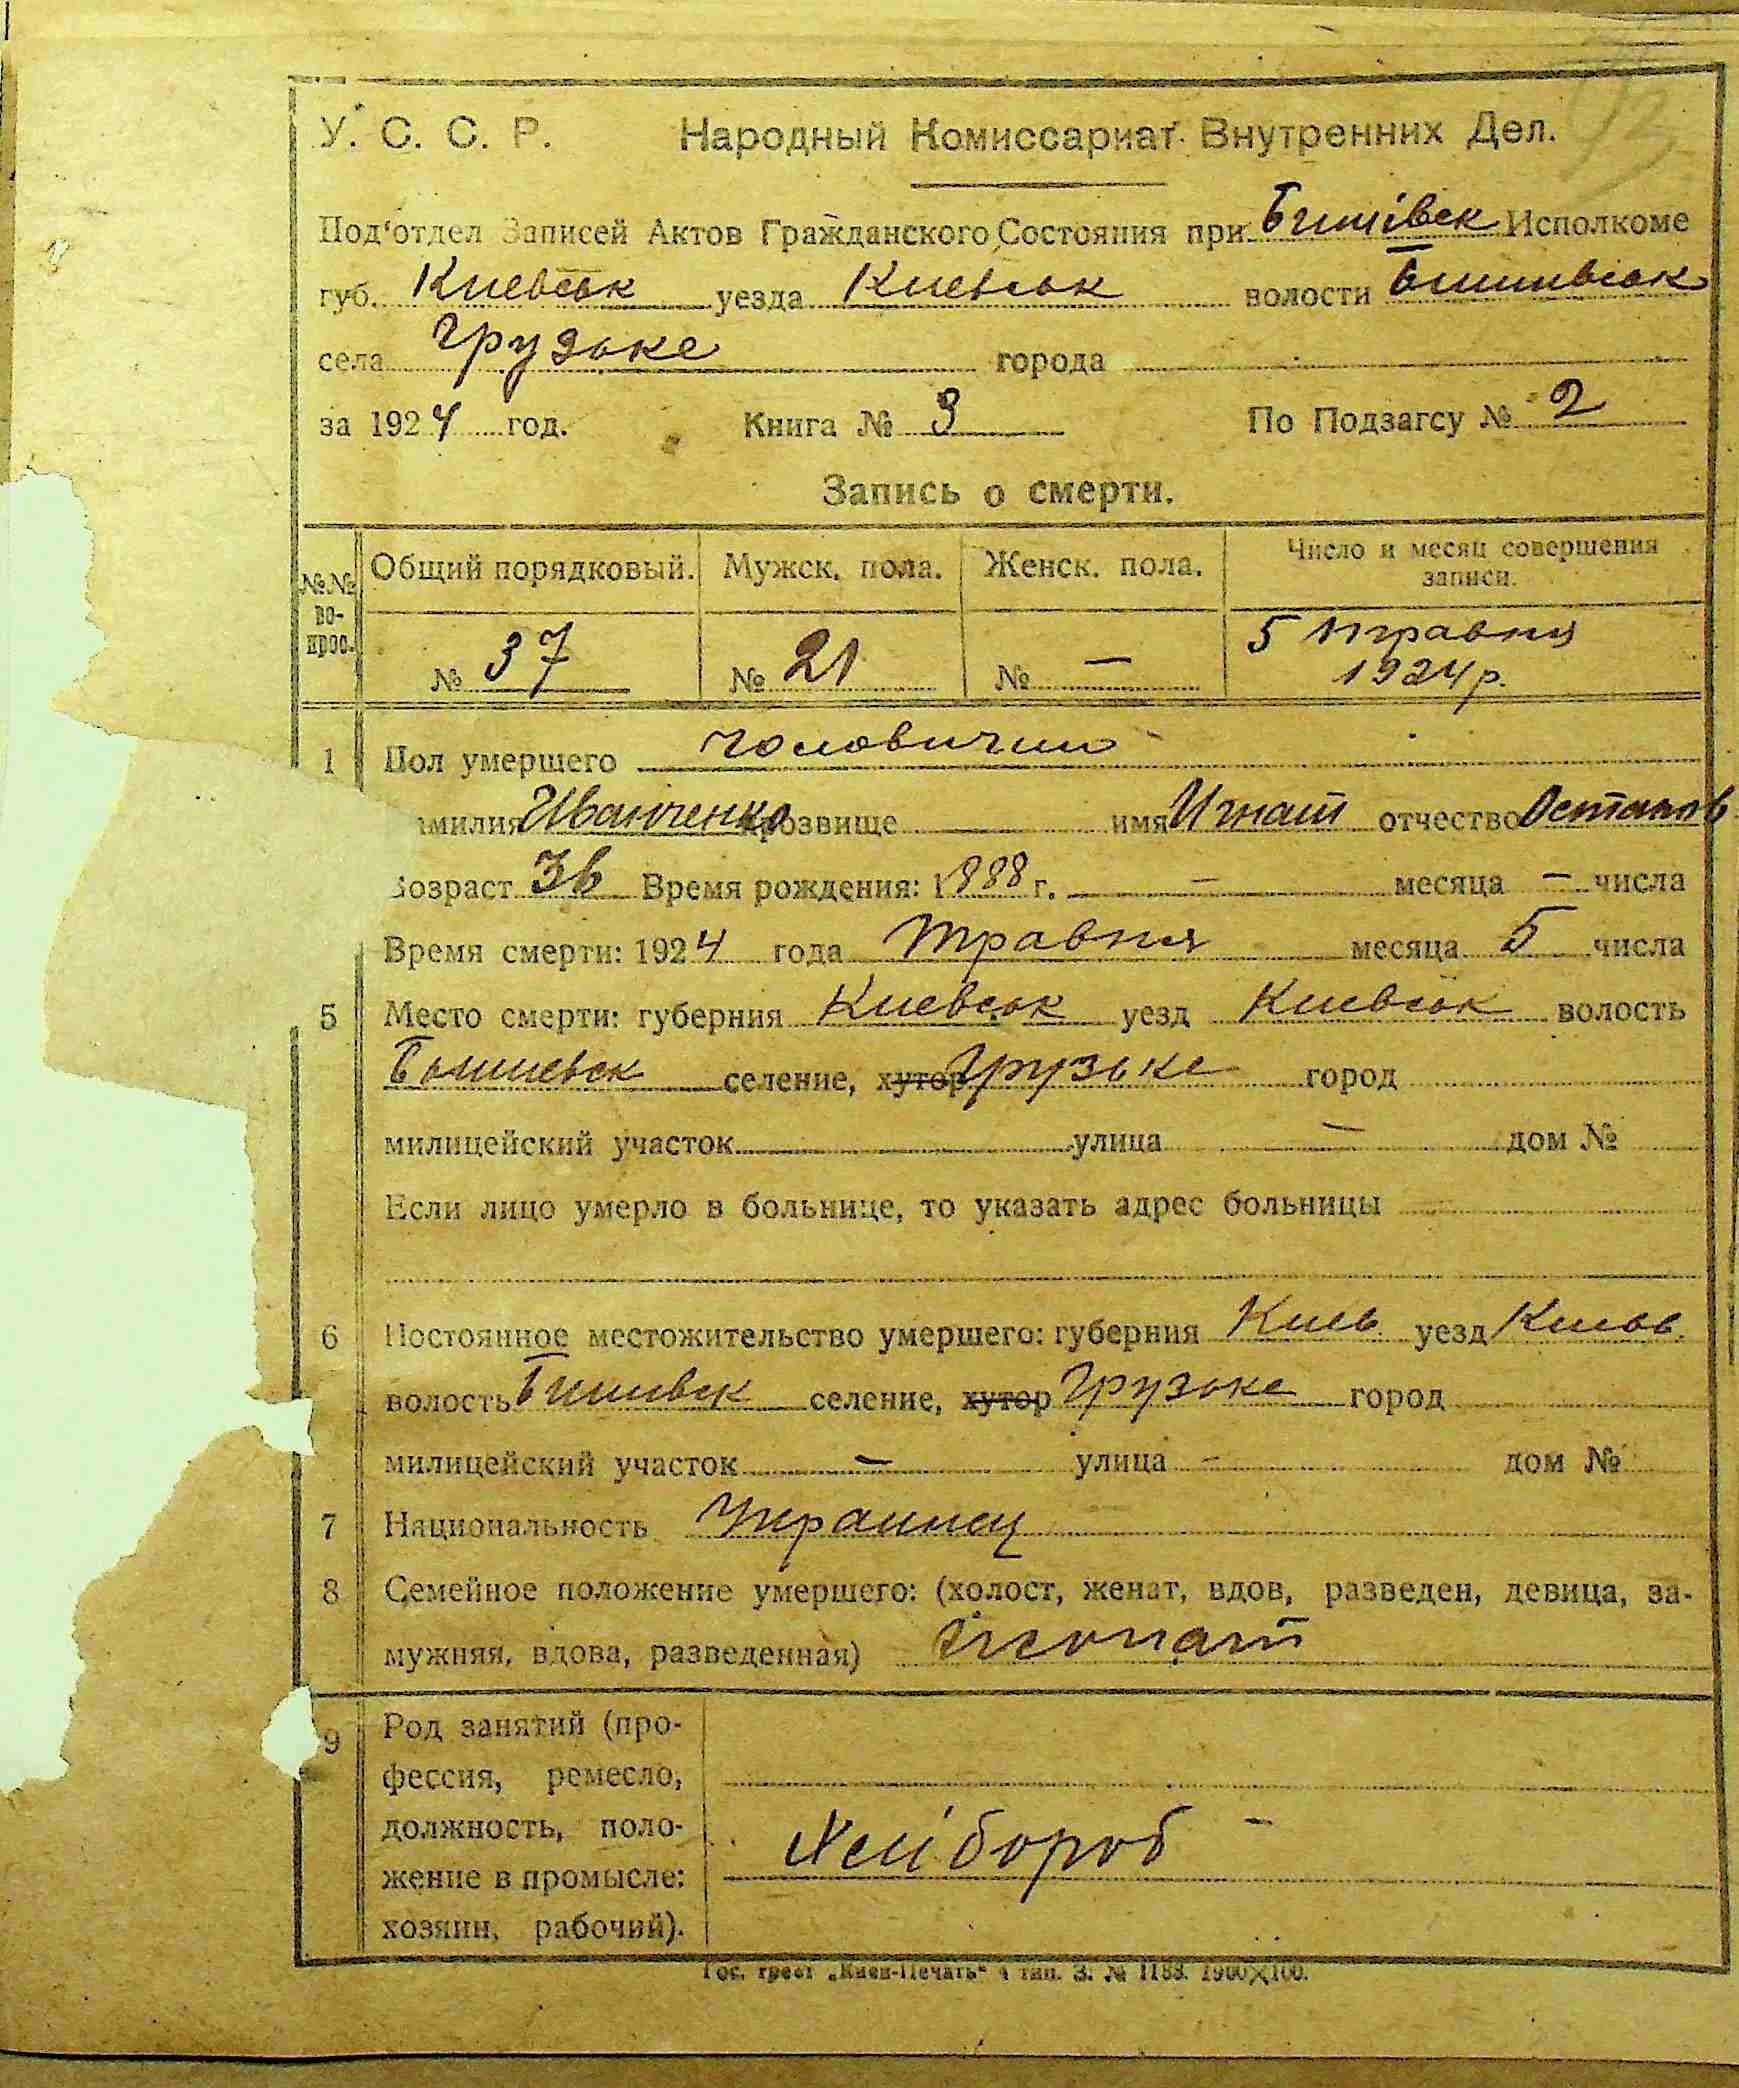 У. С. С. Р. Народный Комиссариат Внутренних Дел.
Под'отдел Записей Актов Гражданского Состояния при Бишівск Исполкоме
губ. Киевськ уезда Киевськ волости Бишивськ
села Грузьке города
за 1924 год. Книга № 3 По Подзагсу № 2
Запись о смерти.
№№ во-прос. Общий порядковый. Мужск. пола. Женск. пола. Число и месяц совершения записи.
№ 37 № 21 № — 5 травня 1924 р.
1 Пол умершего чоловичий
амилия Иванченко прозвище имя Игнат отчество Остапов
Возраст 36 Время рождения: 1888 г. — месяца — числа
Время смерти: 1924 года травня месяца 5 числа
5 Место смерти: губерния Киевськ уезд Киевськ волость
Бышевск селение, хутор Грузьке город
милицейский участок улица — дом №
Если лицо умерло в больнице, то указать адрес больницы
6 Постоянное местожительство умершего: губерния Киев. уезд Киев.
волость Бишевск селение, хутор Грузьке город
милицейский участок — улица — дом №
7 Национальность Украинец
8 Семейное положение умершего: (холост, женат, вдов, разведен, девица, за-
мужняя, вдова, разведенная) жонат
9 Род занятий (про-
фессия, ремесло,
должность, поло-
жение в промысле:
хозяин, рабочий).
Хлібороб —
Гос. трест „Киев-Печать" 4 тип. З. № 1188. 1900×100.